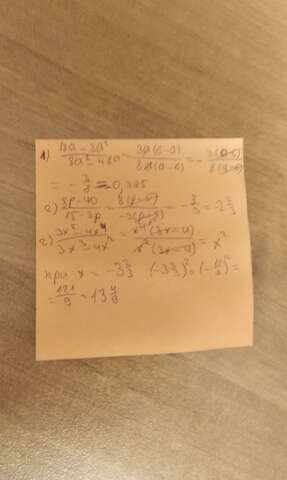 1) (18a - 3a²)/(8a² - 48a) = 3a(6-a)/8a(a-6) = - 3(a-6)/8(a-6)
= - 3/8 = -0,375
в) (8p - 40)/(15 - 3p) = 8(p-5)/-3(p-5) = - 8/3 = -2 2/3
г) (3x⁵ - 4x⁴)/(3x³ - 4x²) = x⁴(3x-4)/x²(3x-4) = x²
при x = -3 2/3 (-3 2/3)² = (- 11/3)² =
= 121/9 = 13 4/9